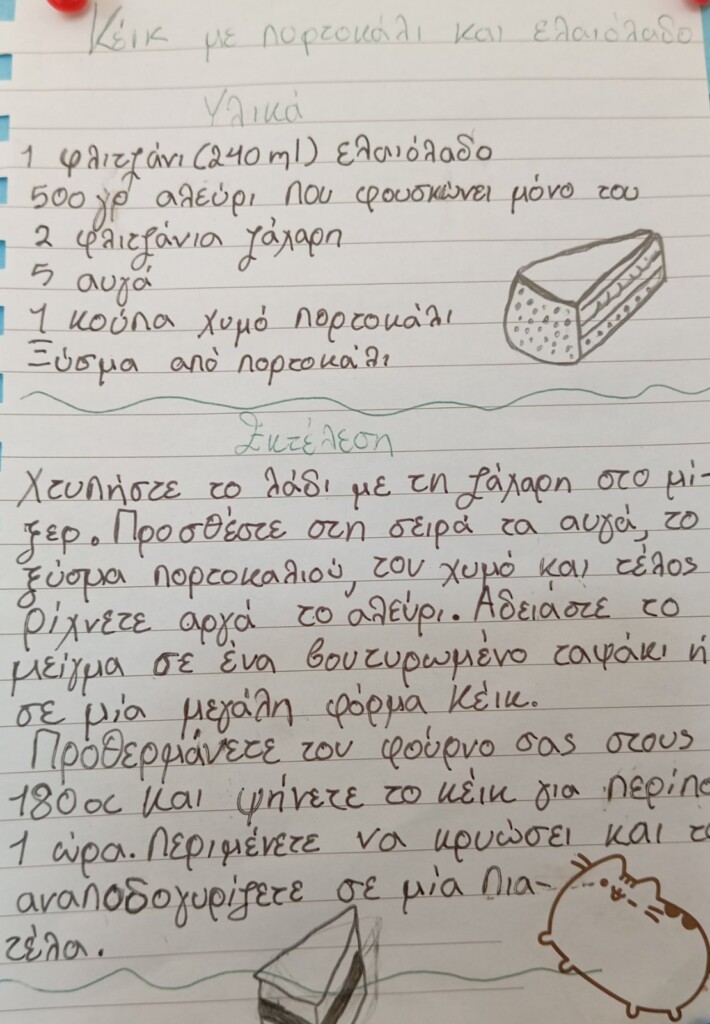 Κέικ με πορτοκάλι και ελαιόλαδο
Υλικά
1 φλιτζάνι (240 ml) ελαιόλαδο
500 γρ αλεύρι που φουσκώνει μόνο του
2 φλιτζάνια ζάχαρη
5 αυγά
1 κούπα χυμό πορτοκάλι
Ξύσμα από πορτοκάλι
Εκτέλεση
Χτυπήστε το λάδι με τη ζάχαρη στο μί-
ξερ. Προσθέστε στη σειρά τα αυγά, το
ξύσμα πορτοκαλιού, τον χυμό και τέλος
ρίχνετε αργά το αλεύρι. Αδειάστε το
μείγμα σε ένα βουτυρωμένο ταψάκι ή
σε μία μεγάλη φόρμα κέικ.
Προθερμάνετε τον φούρνο σας στους
180οc και ψήνετε το κέικ για περίπο
1 ώρα. Περιμένετε να κρυώσει και το
αναποδογυρίζετε σε μία πια-
τέλα.